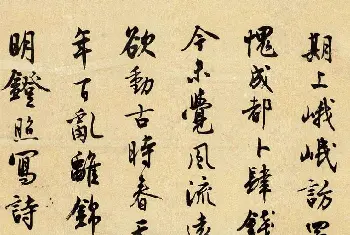 期上峨岷訪
愧成都卜肆錢
今未覺風流遠
欲動古時春
年百亂離錦
明鐙照寫詩